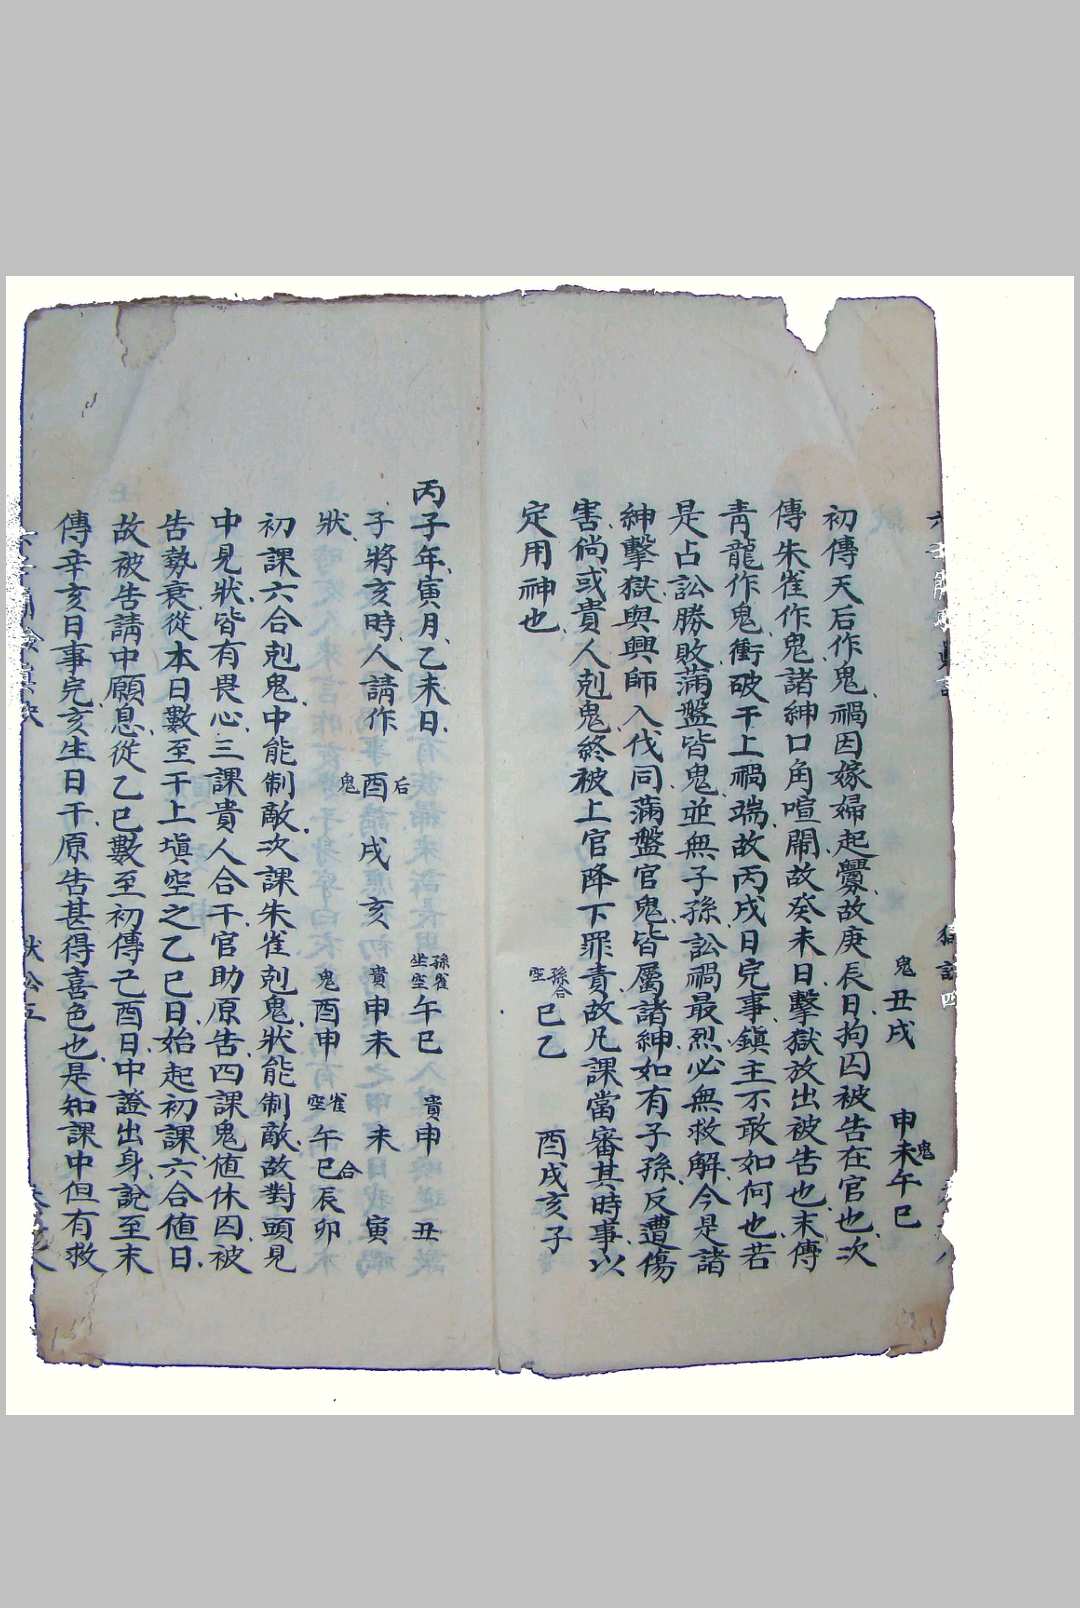 鬼 丑戌 申未午巳 鬼
初傳天后作鬼禍因嫁婦起釁故庚辰日拘囚被告在官也次
傳朱雀作鬼諸紳口角喧鬧故癸未日擊獄放出被告也末傳
青龍作鬼衝破干上禍端故丙戌日完事鎮主不敢如何也若
是占訟勝敗滿盤皆鬼並無子孫訟禍最烈必無救解今是諸
紳擊獄與興師入伐同滿盤官鬼皆屬諸紳如有子孫反遭傷
害倘或貴人剋鬼終被上官降下罪責故凡課當審其時事以
定用神也 孫合空 巳乙 酉戌亥子
丙子年寅月乙未日 孫雀坐空 午巳 貴申 丑
子將亥時人請作 后 酉 鬼 戌 亥 貴 申未 未 寅
狀 鬼 酉申 雀空 午巳 合 辰卯
初課六合剋鬼中能制敵次課朱雀剋鬼狀能制敵故對頭見
中見狀皆有畏心三課貴人合干官助原告四課鬼值休囚被
告勢衰從本日數至干上填空之乙巳日始起初課六合值日
故被告請中願息從乙巳數至初傳己酉日中證出身說至末
傳辛亥日事完亥生日干原告甚得喜色也是知課中但有救